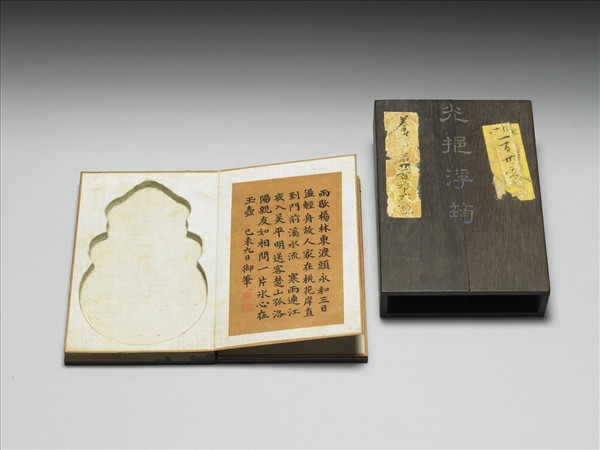 雨歇楊林東渡頭永和三日
盪輕舟故人家在桃花岸直
到門前溪水流 寒雨連江
夜入吳平明送客楚山孤洛
陽親友如相問一片冰心在
玉壺 己未九日御筆
光挹浮筠